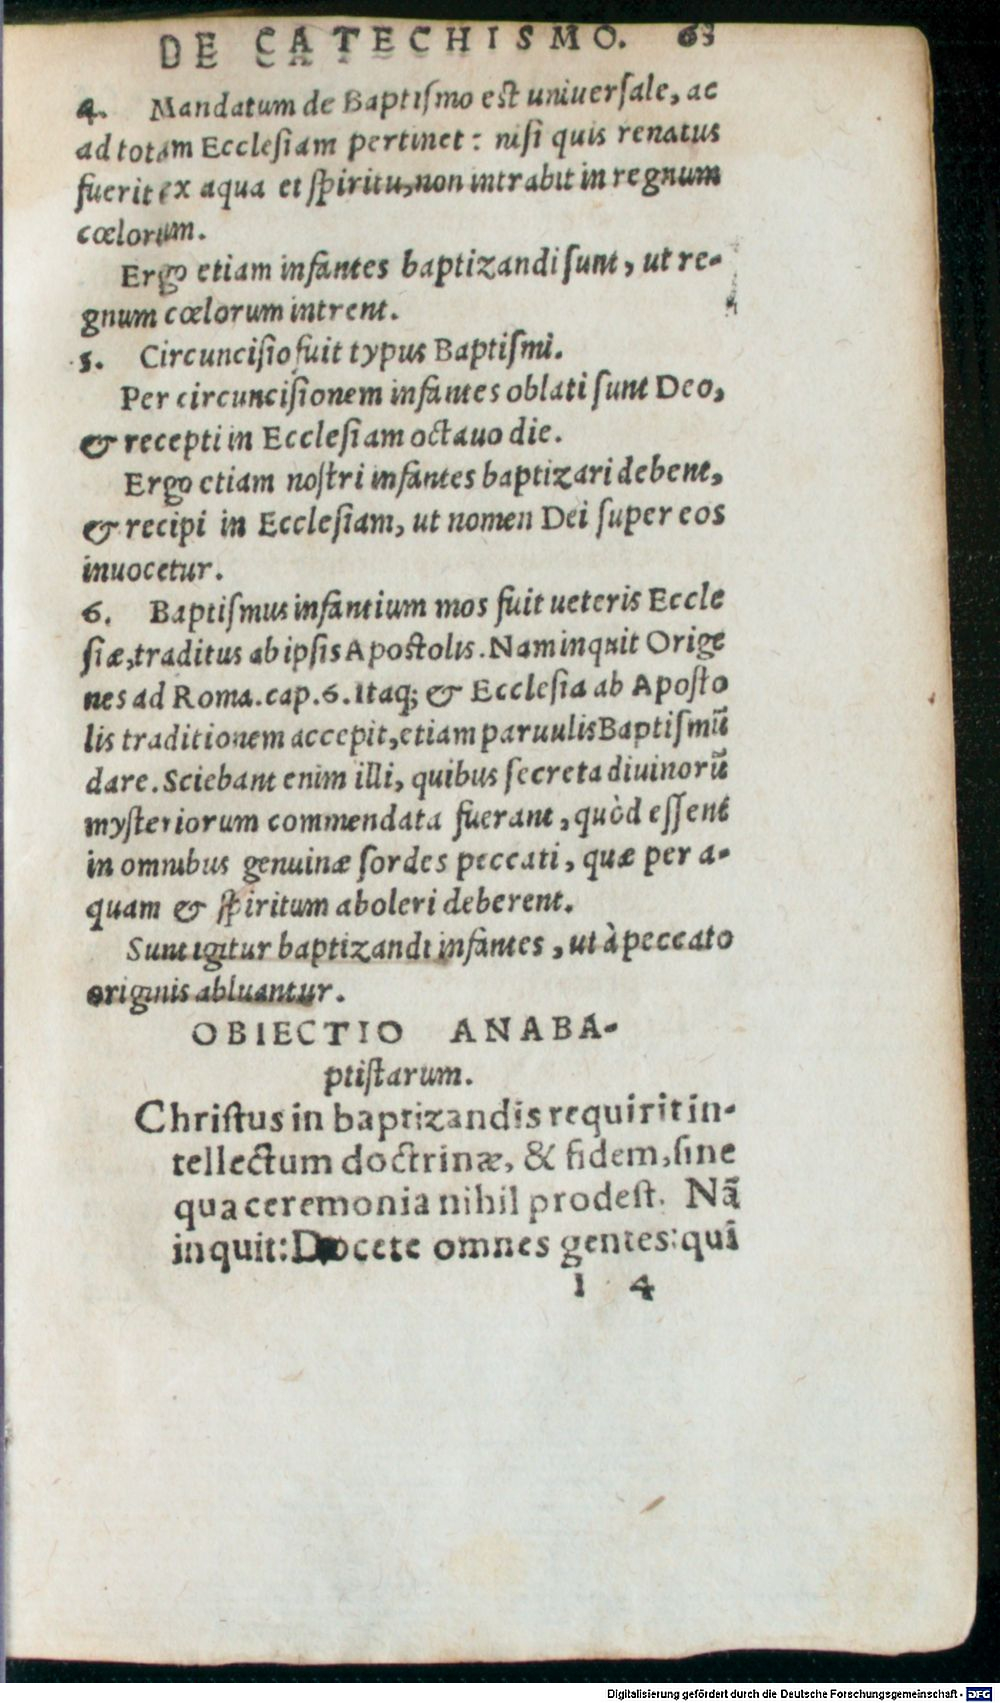 DE CATECHISMO. 63
4. Mandatum de Baptiſmo est uniuerſale, ac
ad totam Eccleſiam pertinet: niſi quis renatus
fuerit ex aqua et ſpiritu, non intrabit in regnum
cœlorum.
Ergo etiam infantes baptizandi ſunt, ut re-
gnum cœlorum intrent.
5. Circunciſio fuit typus Baptiſmi.
Per circunciſionem infantes oblati ſunt Deo,
& recepti in Eccleſiam octauo die.
Ergo etiam noſtri infantes baptizari debent,
& recipi in Eccleſiam, ut nomen Dei ſuper eos
inuocetur.
6. Baptiſmus infantium mos fuit ueteris Eccle
ſiæ, traditus ab ipſis Apoſtolis. Nam inquit Orige
nes ad Roma. cap. 6. Itaq; & Eccleſia ab Apoſto
lis traditionem accepit, etiam paruulis Baptiſmũ
dare. Sciebant enim illi, quibus ſecreta diuinorũ
myſteriorum commendata fuerant, quòd eſſent
in omnibus genuinæ ſordes peccati, quæ per a-
quam & ſpiritum aboleri deberent.
Sunt igitur baptizandi infantes, ut à peccato
originis abluantur.
OBIECTIO ANABA-
ptiſtarum.
Chriſtus in baptizandis requirit in-
tellectum doctrinæ, & fidem, ſine
qua ceremonia nihil prodeſt. Nã
inquit: Docete omnes gentes: qui
I 4
Digitalisierung gefördert durch die Deutsche Forschungsgemeinschaft - DFG